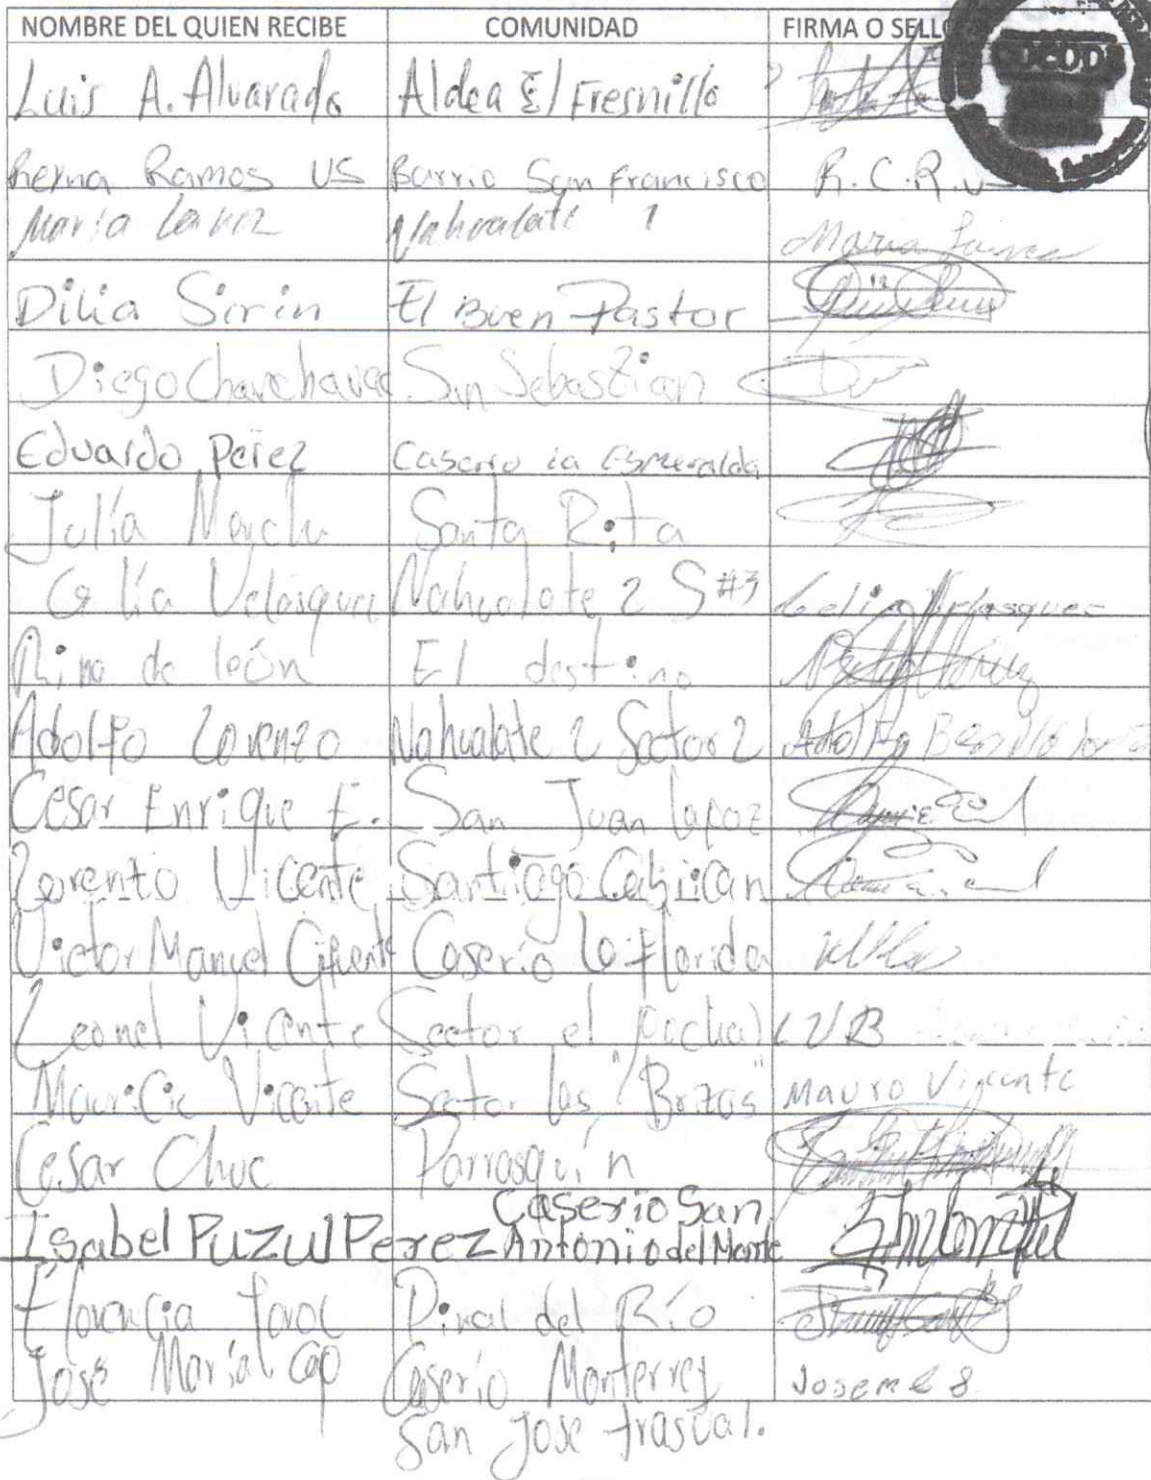 NOMBRE DEL QUIEN RECIBE COMUNIDAD FIRMA O SELLO
Luis A. Alvarado Aldea El Fresnillo
Reyna Ramos US Barrio San Francisco R.C.R.US
María Nahualate 1 Maria
Dilia Sirin El Buen Pastor
Diego San Sebastian
Eduardo Pérez Caserio la Esmeralda
Julía Menchu Santa Rita
Celía Velásquez Nahualate 2 S #3 Celia Velasquez
Rino de león El destino
Adolfo Lorenzo Nahualate 2 Sector 2 Adolfo
Cesar Enrique E. San Juan lapaz
Lorento Vicente Santiago Cabrican
Victor Manuel Cifuent Caserío la Florida
Leonel Vicente Sector el LVB
Mauricio Vicente Sector las "Brizas" Mauro Vicente
Cesar Chuc Parrasquín
Isabel Puzul Perez Caserio San Antonio del Monte
Florencia Pinal del Río
José María Cap Caserío Monterrey
San Jose